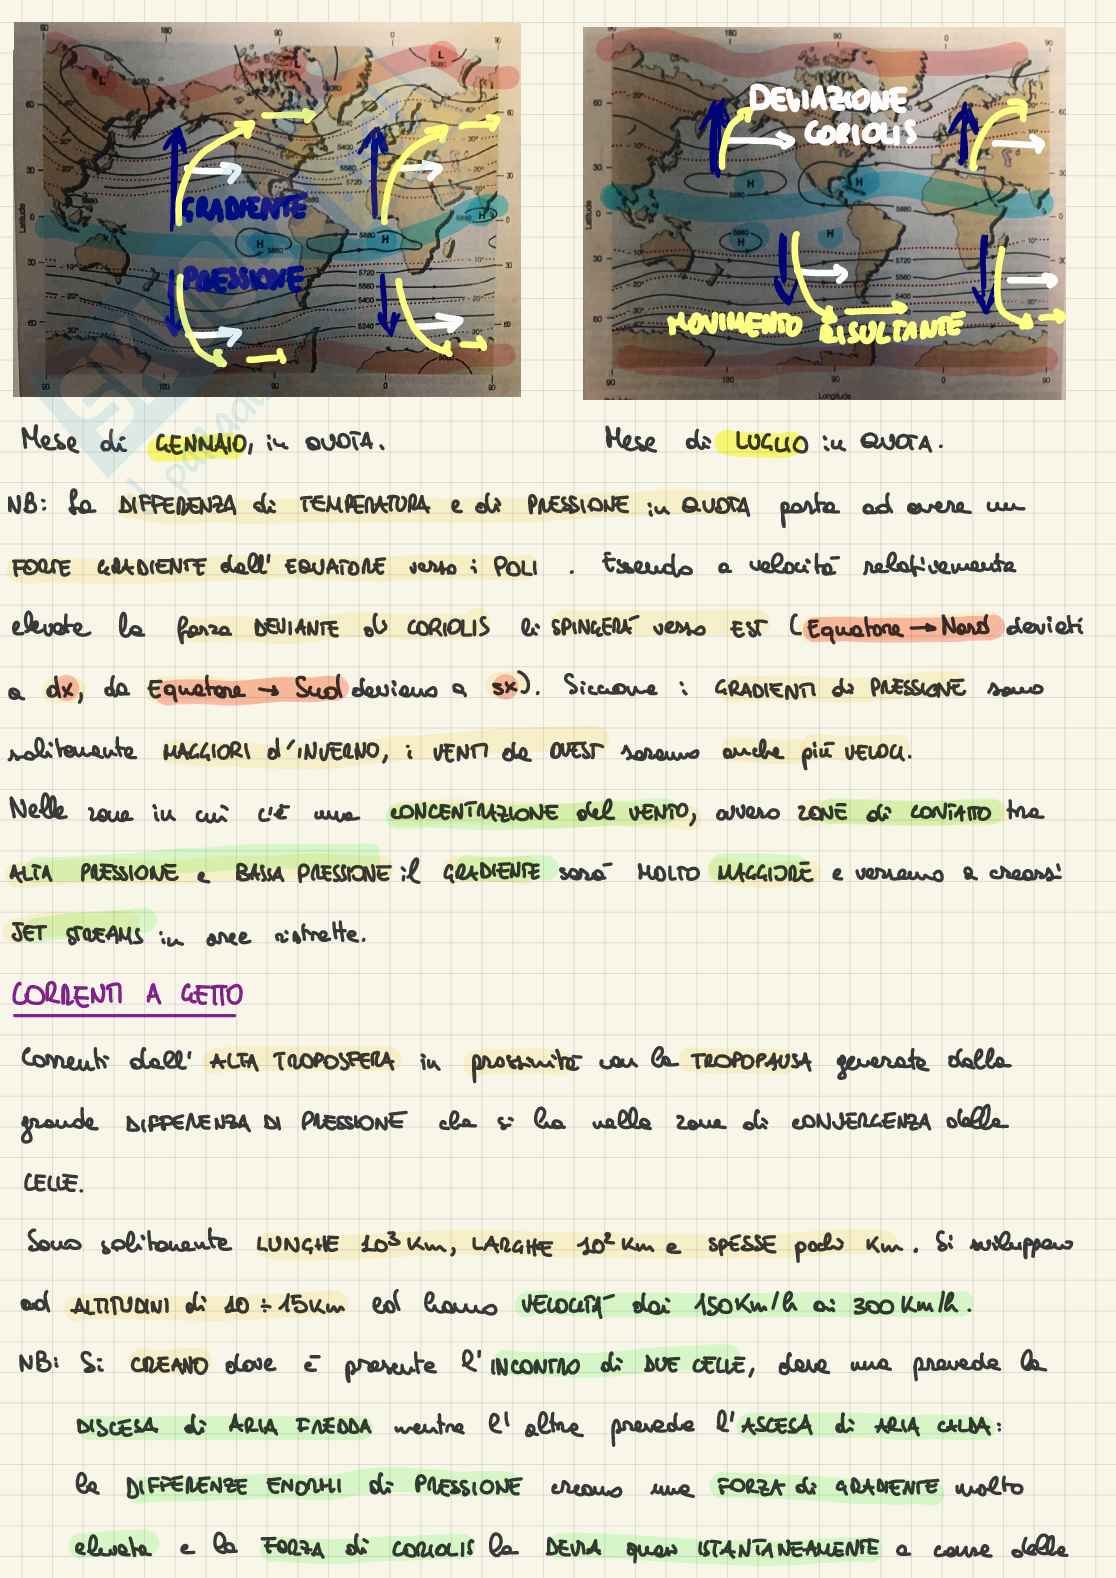 DEVIAZIONE
CORIOLIS
GRADIENTE
PRESSIONE
MOVIMENTO RISULTANTE
Mese di GENNAIO, in QUOTA.
Mese di LUGLIO in QUOTA.
NB: La DIFFERENZA di TEMPERATURA e di PRESSIONE in QUOTA porta ad avere un
FORTE GRADIENTE dall'EQUATORE verso i POLI. Essendo a velocità relativamente
elevate la forza DEVIANTE di CORIOLIS li SPINGERÀ verso EST (Equatore → Nord deviati
a dx, da Equatore → Sud deviano a sx). Siccome i GRADIENTI di PRESSIONE sono
solitamente MAGGIORI d'INVERNO, i VENTI da OVEST saranno anche più VELOCI.
Nelle zone in cui c'è una CONCENTRAZIONE del VENTO, ovvero ZONE di CONTATTO tra
ALTA PRESSIONE e BASSA PRESSIONE il GRADIENTE sarà MOLTO MAGGIORE e verranno a crearsi
JET STREAMS in aree ristrette.
CORRENTI A GETTO
Correnti dall'ALTA TROPOSFERA in prossimità con la TROPOPAUSA generate dalla
grande DIFFERENZA DI PRESSIONE che si ha nella zona di CONVERGENZA delle
CELLE.
Sono solitamente LUNGHE 10³ Km, LARGHE 10² Km e SPESSE pochi Km. Si sviluppano
ad ALTITUDINI di 10 ÷ 15 Km ed hanno VELOCITÀ dai 150 Km/h ai 300 Km/h.
NB: Si CREANO dove è presente l'INCONTRO di DUE CELLE, dove una prevede la
DISCESA di ARIA FREDDA mentre l'altra prevede l'ASCESA di ARIA CALDA:
la DIFFERENZE ENORMI di PRESSIONE creano una FORZA di GRADIENTE molto
elevata e la FORZA di CORIOLIS la DEVIA quasi ISTANTANEAMENTE a causa della